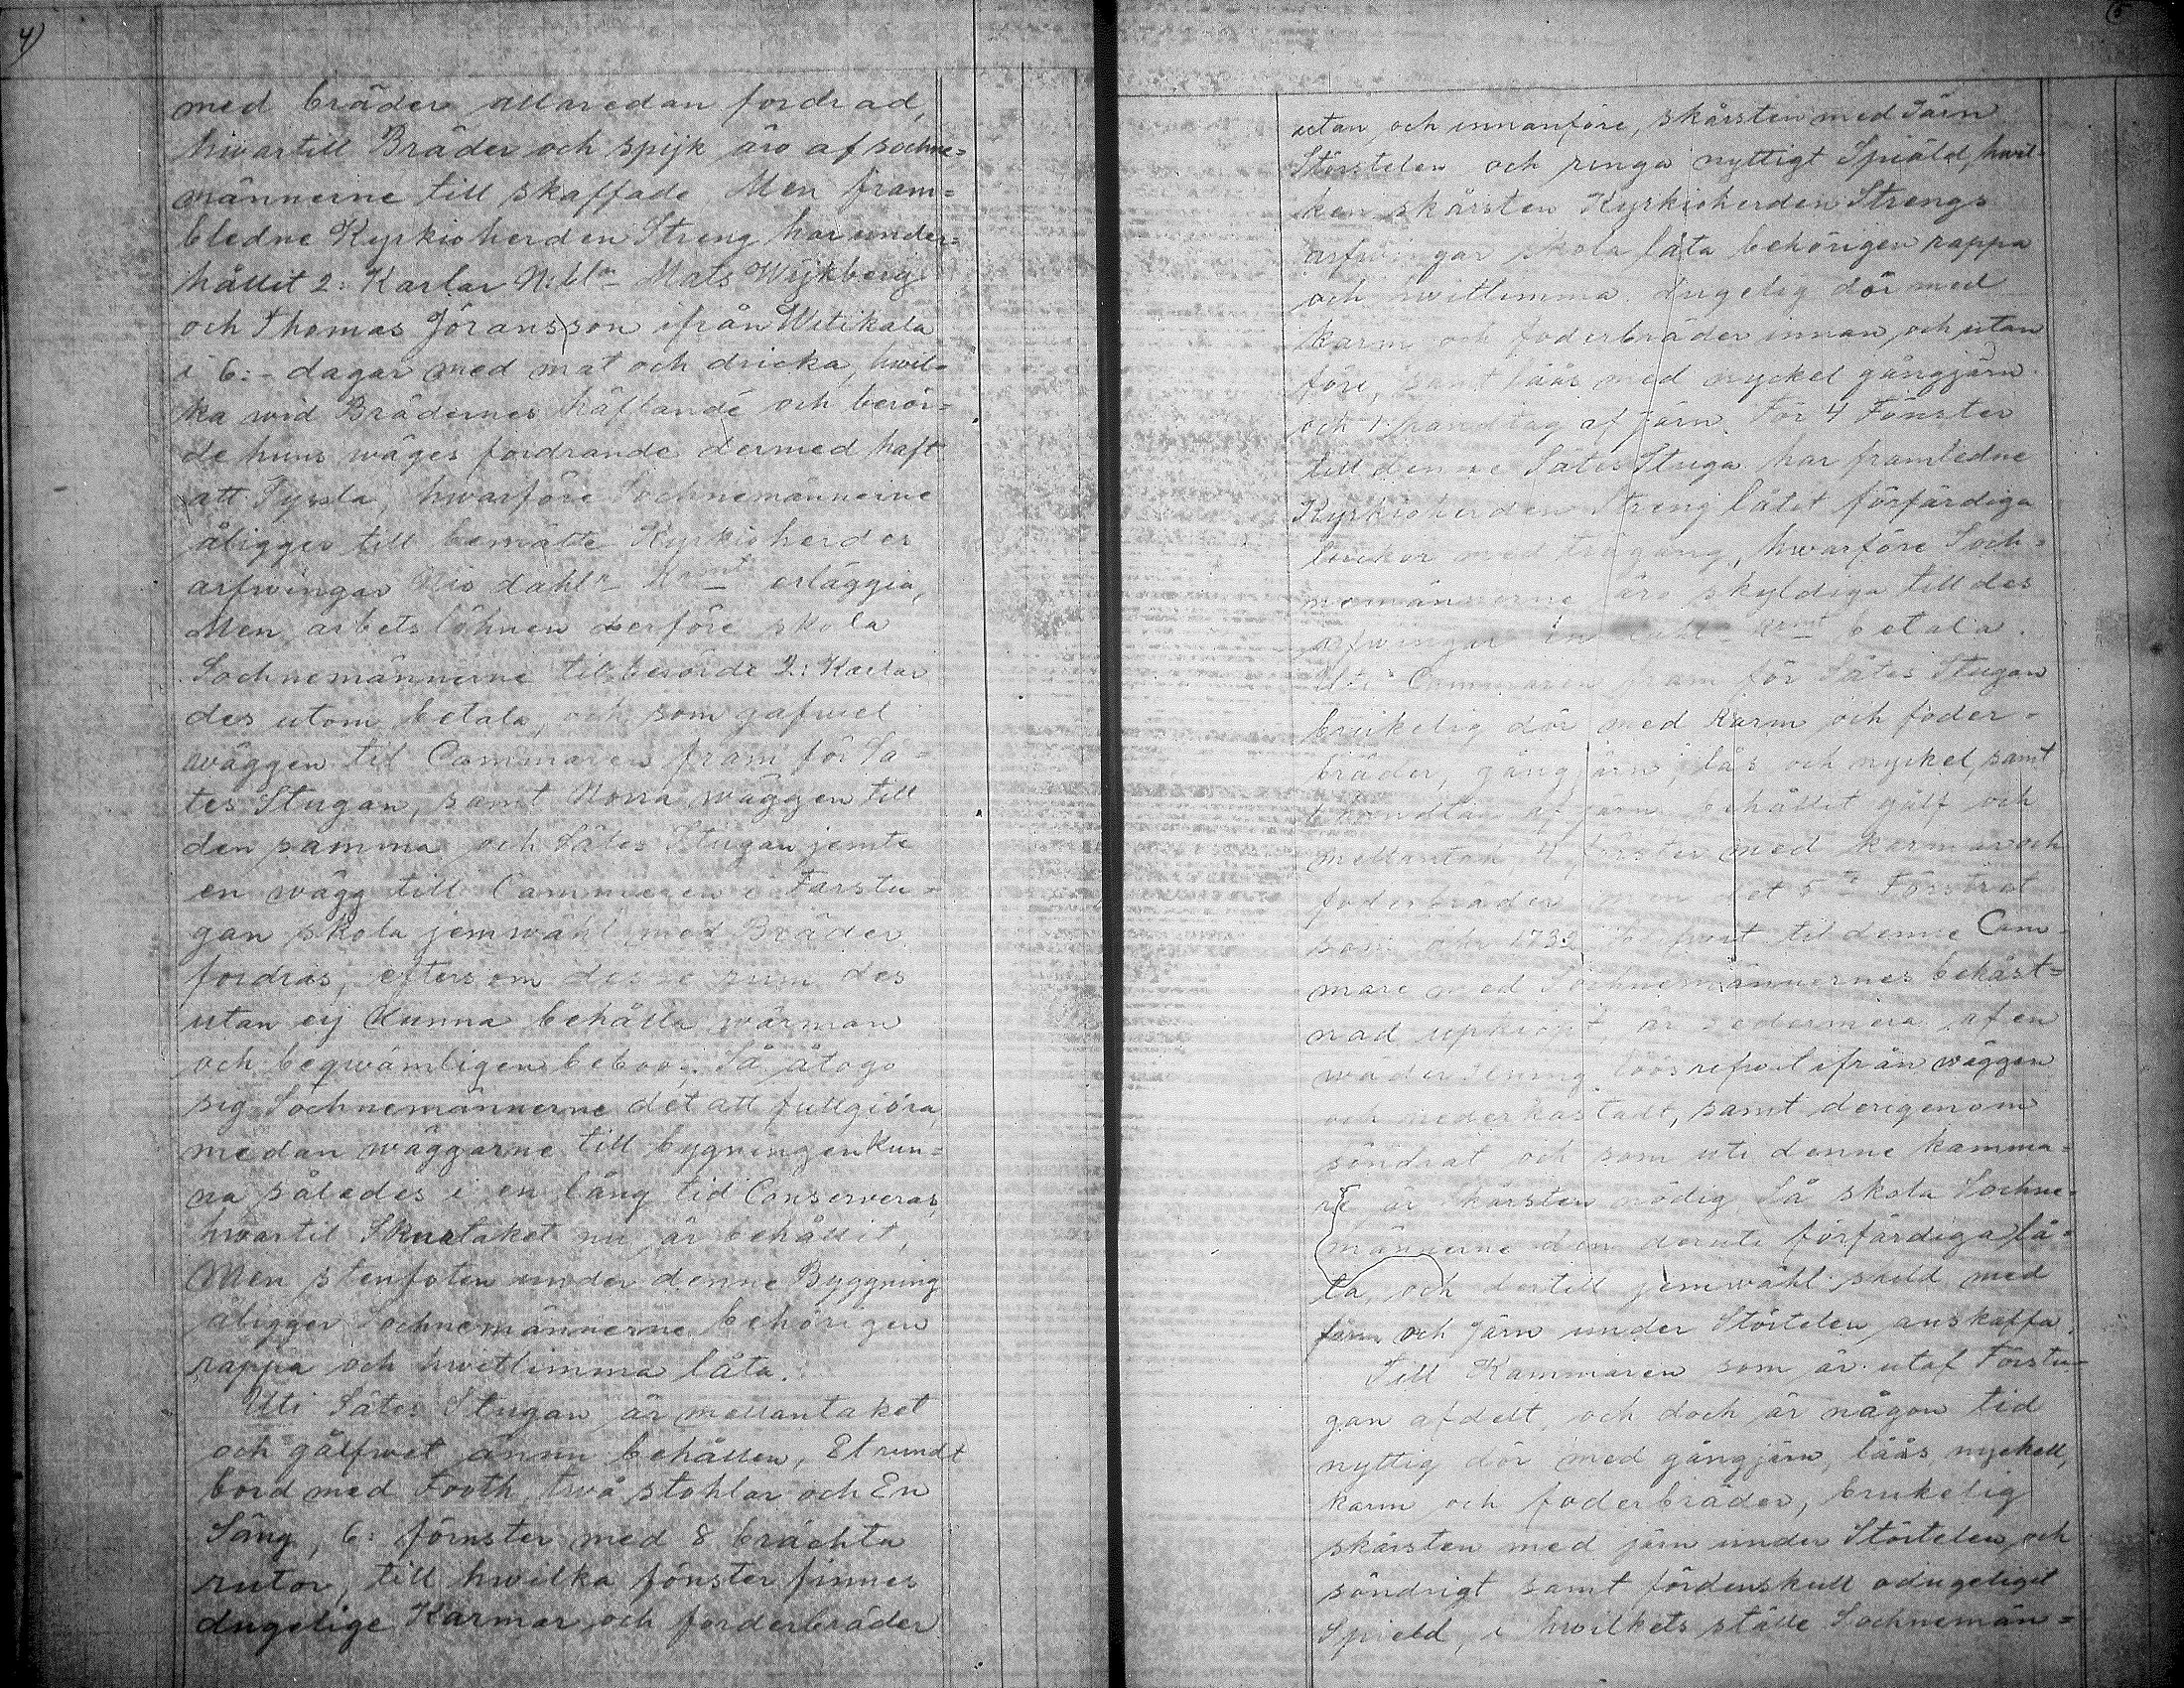 4)
med bräder allaredan fordrad,
hwartill Bräder och spijk äro af sochne=
männerne till skaffade Men fram=
bledne Kyrkioherden Streng har under=
hållit 2: Karlar Mats Wijkberg
och Thomas Jöransson ifrån Witikala
i 6:- dagar med mat och dricka, hwil=
ka wid Brädernes häflande och berör=
de huus wäges fordrande dermed haft
att Syssla, hwarföre Sochnemännerne
åligger till bemälte Kyrkioherdes
arfwingar Nio dahlr Krmt erläggia,
Men arbetslöhnen derföre skola
Sochnemännerne til berörde 2: Karlar
des utom betala, och som gafwel
wäggen til Cammaren fram för Sä=
tes Stugan, samt Norra wäggen till
den samma och Sätes Stugan jemte
en wägg till Cammaren i Farstu=
gan skola jemwähl med Bräder
fordras, eftersom desse rum des
utan ej kunna behålla wärman
och beqwämligen beboos; Så åtogo
sig Sochnemännerne det att fullgiöra,
medan wäggarne till bygningen kun=
na således i en lång tid Conserveras,
hwartil Skurtaket nu är behållit,
Men stenfoten under denne Byggning
åligger Sochnemännerne behörigen
rappa och hwitlimma låta.
Uti Sätes Stugan är mellantaket
och gålfwet ännu behållen, Et rundt
bord med Footh, två stohlar och En
Säng, 6: förnster med 8 brächta
rutor, till hwilka fönster finnes
dugelige Karmar och forderbräder
(5
utan och innanföre, skårsten med Järn
Störtelen och ringa nyttigt Spiäld, hwil=
ken skårsten Kyrkioherden Strengs
arfwingar skola låta behörigen rappa
och hwitlimma. Dugelig dör med
karm och foderbräder innan och utan
före, samt låås med nyckel gångjärn
och 1 handtag af järn. För 4 Fönster
till denne Sätes Stuga har framledne
Kyrkioherden Streng låtit förfärdiga
luckor med trägång, hwarföre Soch=
nemännerne äro skyldiga till des
arfwingar en dahl Krmt betala.
Uti Cammaren fram för Sätes Stugan
brukelig dör med Karm och foder=
bräder, gångjärn, lås och nyckel, samt
1 handtag af järn behållit gålf och
mellantak 4 fönster med Karmar och
foderbräder men det 5te Fönstret
som åhr 173 til denne Cam=
mare med Sochnemännernes bekåst=
nad upkiöpt, är sedermera af en
wäderstrng löösrifwit ifrån wäggen
och nederkastadt, samt derigenom
söndrat och som uti denne kamma=
re är skårsten nödig, Så skola Sochne=
männerne den deruti förfärdiga lå=
ta, och dertill jemwähl skeld med
järn och Järn under Störtelen anskaffa.
Till Kammaren som är utaf Förstu=
gan afdelt, och doch är någon tid
nyttig dör med gångjärn, låås, nyckell,
karm och foderbräder, brukelig
skårsten med järn under Störtelen och
söndrigt samt fördenskull odugeligit
Spield, i hwilkets ställe Sochnemän=